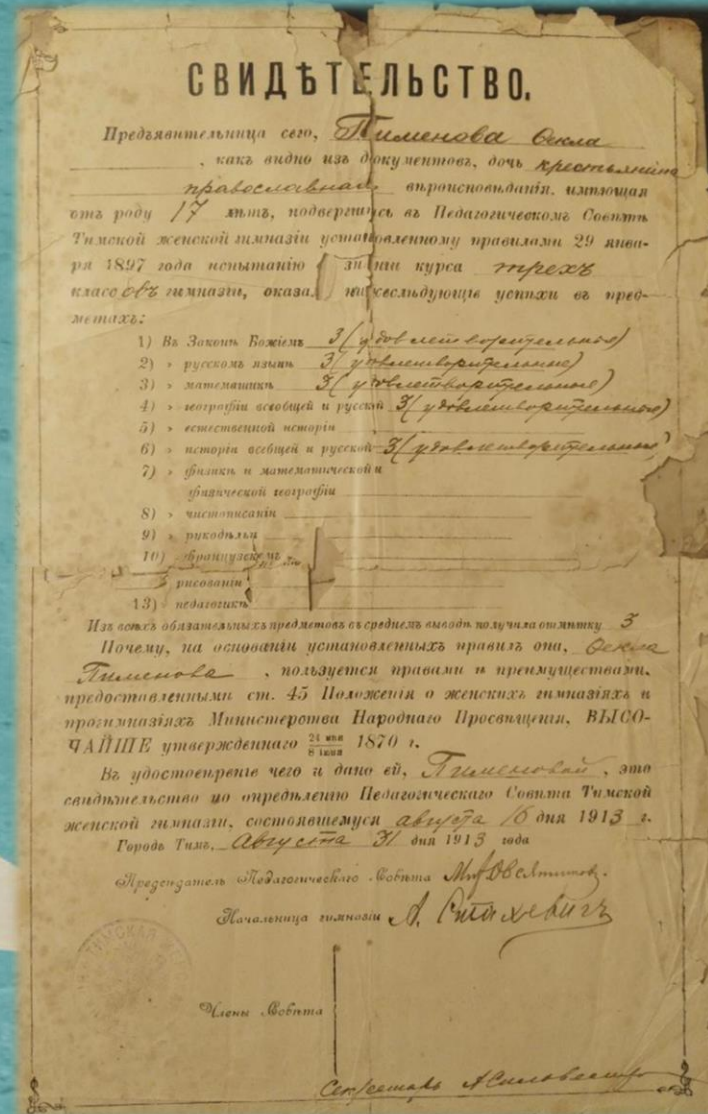 СВИДѢТЕЛЬСТВО.
Предъявительница сего, Пименова Ѳекла
, какъ видно изъ документовъ, дочь крестьянина
православнаго вѣроисповѣданія, имѣющая
отъ роду 17 лѣтъ, подвергшись въ Педагогическомъ Совѣтѣ
Тимской женской гимназіи установленному правилами 29 янва-
ря 1897 года испытанію знаніи курса трехъ
классовъ гимназіи, оказа нижеслѣдующіе успѣхи въ пред-
метахъ:
1) Въ Законѣ Божіемъ 3 (удовлетворительные)
2) » русскомъ языкѣ 3 (удовлетворительные)
3) » математикѣ 3 (удовлетворительные)
4) » географіи всеобщей и русской 3 (удовлетворительные)
5) » естественной исторіи
6) » исторіи всебщей и русской 3 (удовлетворительные)
7) » физикѣ и математической и
физической географіи
8) » чистописаніи
9) » рукодѣльи
10) » французскомъ
рисованіи
13) » педагогикѣ
Изъ всѣхъ обязательныхъ предметовъ въ среднемъ выводѣ получила отмѣтку 3
Почему, на основаніи установленныхъ правилъ она, Ѳекла
Пименова, пользуется правами и преимуществами,
предоставленными ст. 45 Положенія о женскихъ гимназіяхъ и
прогимназіяхъ Министерства Народнаго Просвѣщенія, ВЫСО-
ЧАЙШЕ утвержденнаго 24 мая / 8 іюня 1870 г.
Въ удостовѣреніе чего и дано ей, Пименовой, это
свидѣтельство по опредѣленію Педагогическаго Совѣта Тимской
женской гимназіи, состоявшемуся августа 16 дня 1913 г.
Городъ Тимъ, Августа 31 дня 1913 года
Предсѣдатель Педагогическаго Совѣта
Начальница гимназіи А. Стахевичъ
ТИМСКАЯ ЖЕН
Члены Совѣта
Секретарь